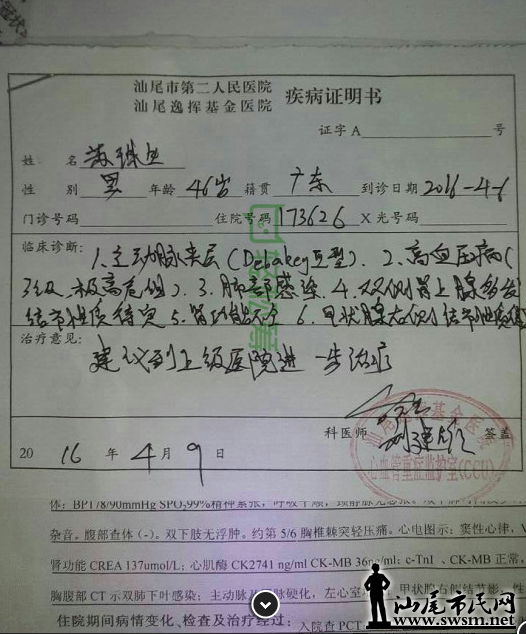 汕尾市第二人民医院
汕尾逸挥基金医院 疾病证明书
证字A 号
姓 名
性 别 男 年龄 46岁 籍贯 广东 到诊日期 2016-4-6
门诊号码 住院号码 173626 X光号码
临床诊断: 1.主动脉夹层(Debakey Ⅲ型). 2.高血压病(
3级、极高危组). 3.肺部感染 4.双侧肾上腺多发
结节性质待定 5.肾功能不全 6.甲状腺右侧结节性质待
治疗意见:
建议到上级医院进一步治疗
科医师 签盖
心血管重症监护室(CCU)
20 16 年 4 月 9 日
轻松筹
体: BP178/90mmHg SPO₂99%精神紧张,呼吸平顺,颈静脉无怒张。
杂音。腹部查体(-)。双下肢无浮肿。约第5/6胸椎棘突轻压痛。心电图示:窦性心律,
肾功能 CREA 137umol/L; 心肌酶 CK2741 ng/ml CK-MB 36ng/ml; c-TnI、CK-MB 正常,
胸腹部 CT 示双肺下叶感染;主动脉 硬化,左心室 甲状腺右侧结节影,
住院期间病情变化、检查及治疗经过: 入院查 PCT
汕尾市民网
www.swsm.net